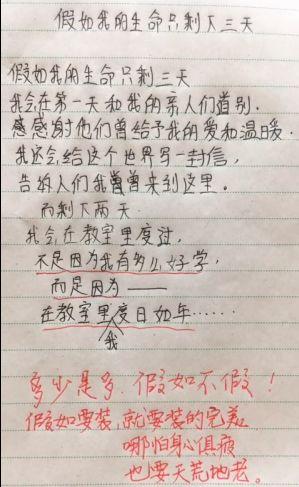 假如我的生命只剩下三天
假如我的生命只剩三天
我会在第一天和我的亲人们道别.
感感谢他们曾给予我的爱和温暖.
我还会给这个世界写一封信,
告诉人们我曾曾来到这里。
而剩下两天
我会在教室里度过,
不是因为我有多么好学,
而是因为——
在教室里度日如年……
我
多少是多.假如不假!
假如要装,就要装的完美
哪怕身心俱疲
也要天荒地老。